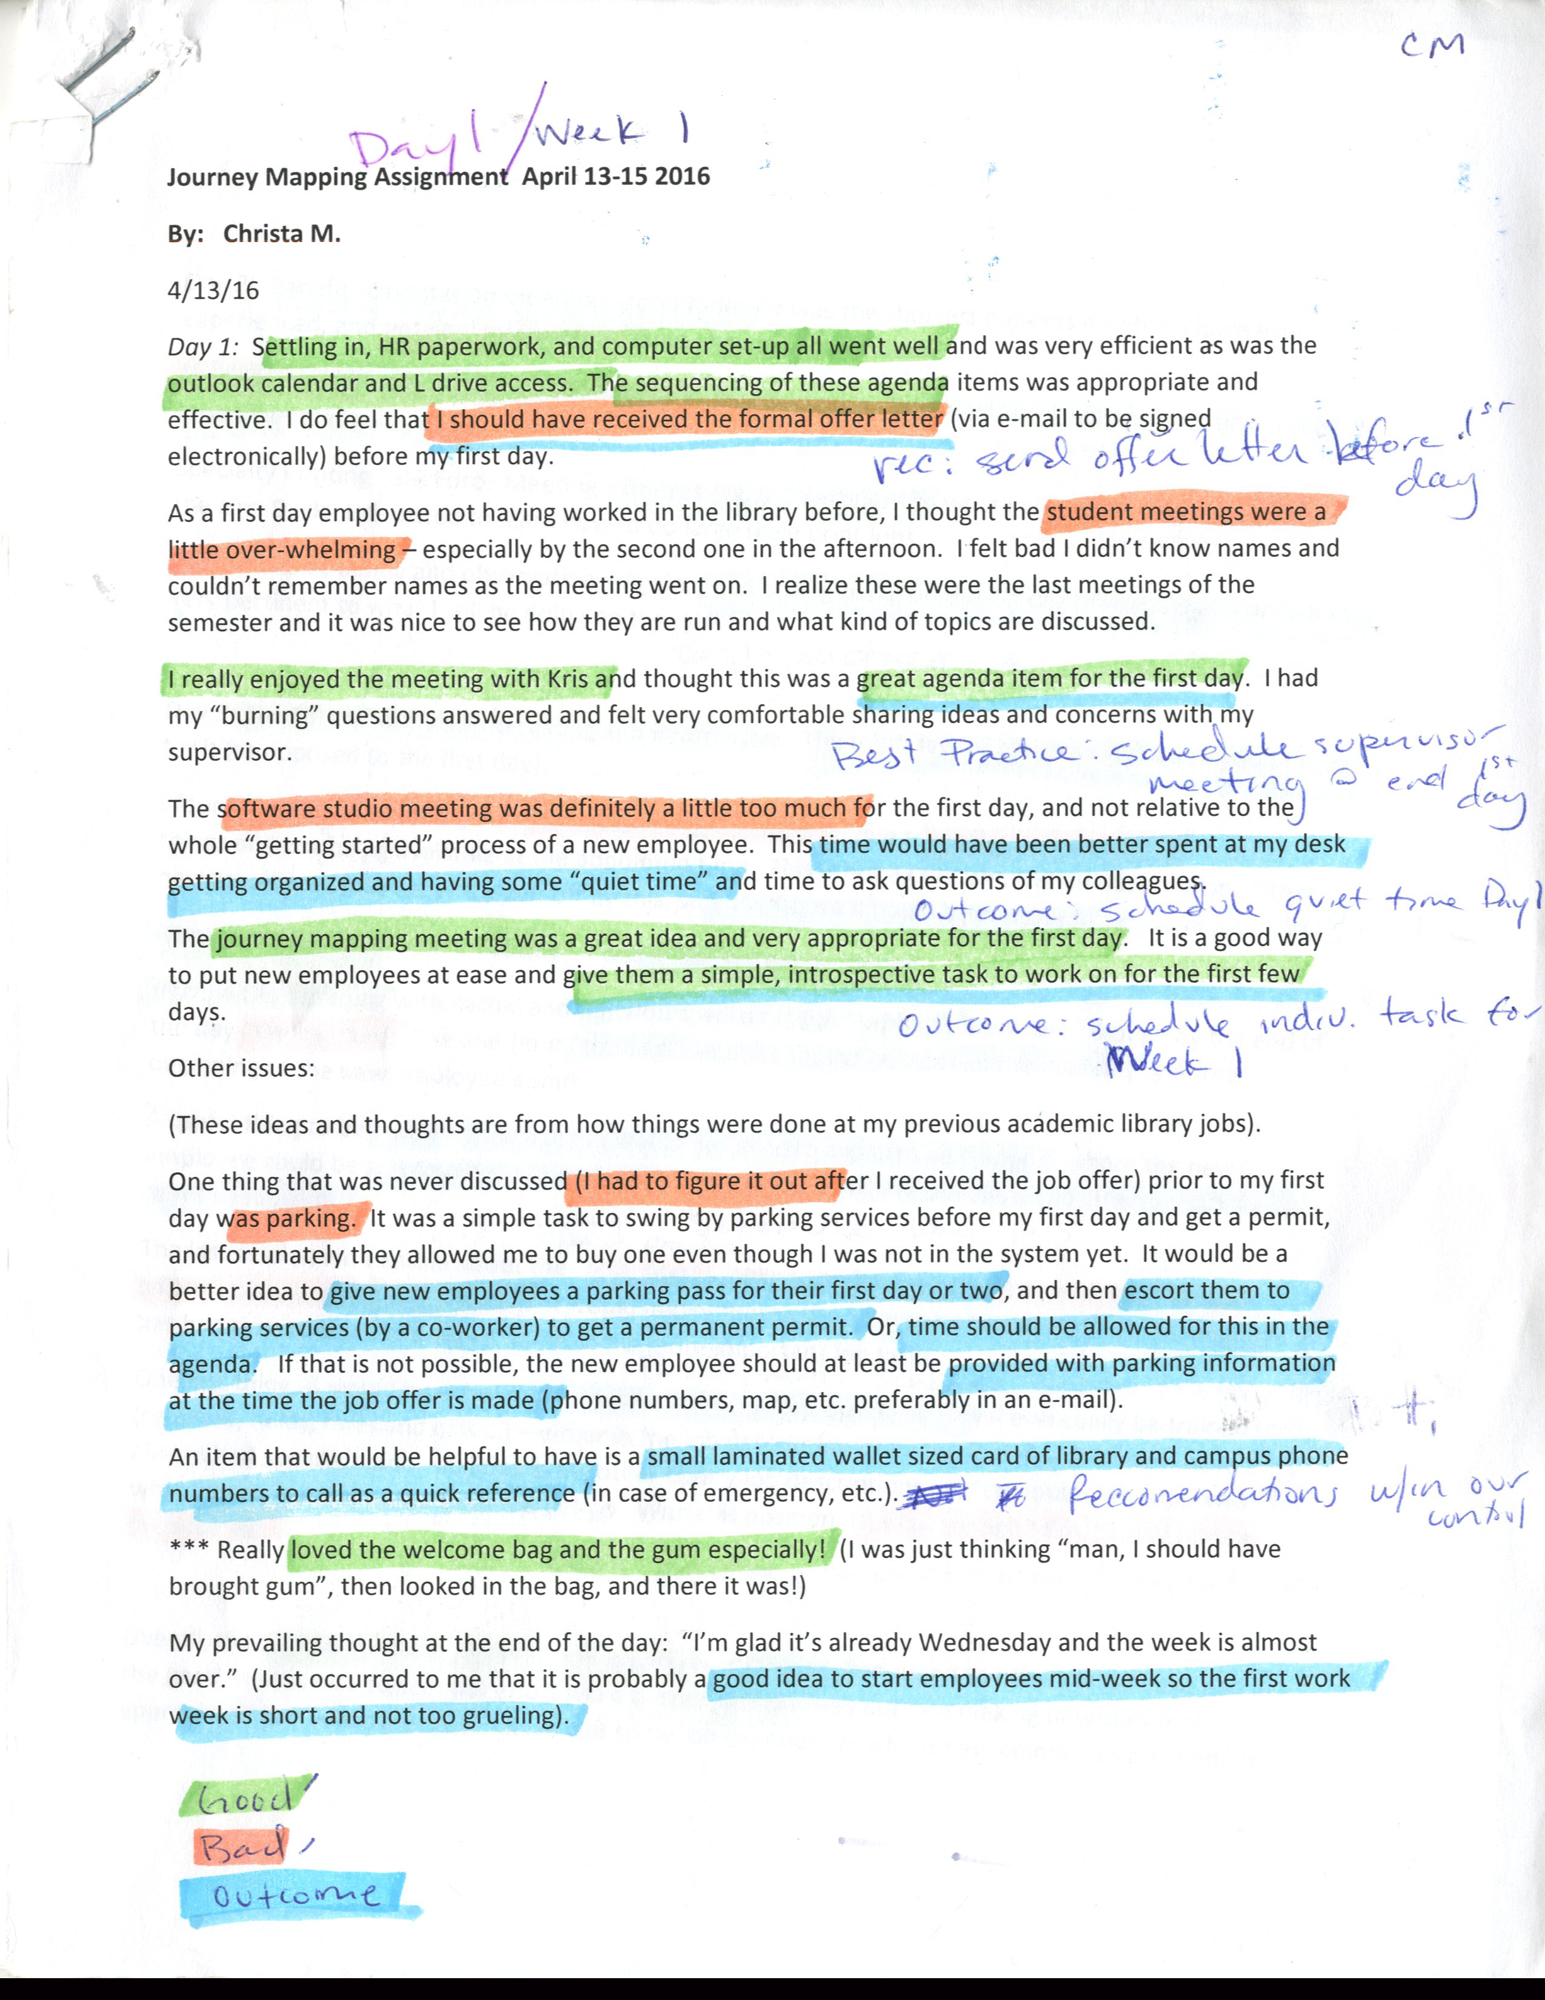 CM
Day 1 / Week 1
Journey Mapping Assignment April 13-15 2016
By: Christa M.
4/13/16
Day 1: Settling in, HR paperwork, and computer set-up all went well and was very efficient as was the
outlook calendar and L drive access. The sequencing of these agenda items was appropriate and
effective. I do feel that I should have received the formal offer letter (via e-mail to be signed
electronically) before my first day.
rec: send offer letter before 1st
day
As a first day employee not having worked in the library before, I thought the student meetings were a
little over-whelming – especially by the second one in the afternoon. I felt bad I didn't know names and
couldn't remember names as the meeting went on. I realize these were the last meetings of the
semester and it was nice to see how they are run and what kind of topics are discussed.
I really enjoyed the meeting with Kris and thought this was a great agenda item for the first day. I had
my "burning" questions answered and felt very comfortable sharing ideas and concerns with my
supervisor.
Best Practice: schedule supervisor
meeting @ end 1st
day
The software studio meeting was definitely a little too much for the first day, and not relative to the
whole "getting started" process of a new employee. This time would have been better spent at my desk
getting organized and having some "quiet time" and time to ask questions of my colleagues.
Outcome: schedule quiet time Day 1
The journey mapping meeting was a great idea and very appropriate for the first day. It is a good way
to put new employees at ease and give them a simple, introspective task to work on for the first few
days.
Outcome: schedule indiv. task for
Week 1
Other issues:
(These ideas and thoughts are from how things were done at my previous academic library jobs).
One thing that was never discussed (I had to figure it out after I received the job offer) prior to my first
day was parking. It was a simple task to swing by parking services before my first day and get a permit,
and fortunately they allowed me to buy one even though I was not in the system yet. It would be a
better idea to give new employees a parking pass for their first day or two, and then escort them to
parking services (by a co-worker) to get a permanent permit. Or, time should be allowed for this in the
agenda. If that is not possible, the new employee should at least be provided with parking information
at the time the job offer is made (phone numbers, map, etc. preferably in an e-mail).
An item that would be helpful to have is a small laminated wallet sized card of library and campus phone
numbers to call as a quick reference (in case of emergency, etc.).
Reccomendations w/in our
control
*** Really loved the welcome bag and the gum especially! (I was just thinking "man, I should have
brought gum", then looked in the bag, and there it was!)
My prevailing thought at the end of the day: "I'm glad it's already Wednesday and the week is almost
over." (Just occurred to me that it is probably a good idea to start employees mid-week so the first work
week is short and not too grueling).
Good
Bad
Outcome